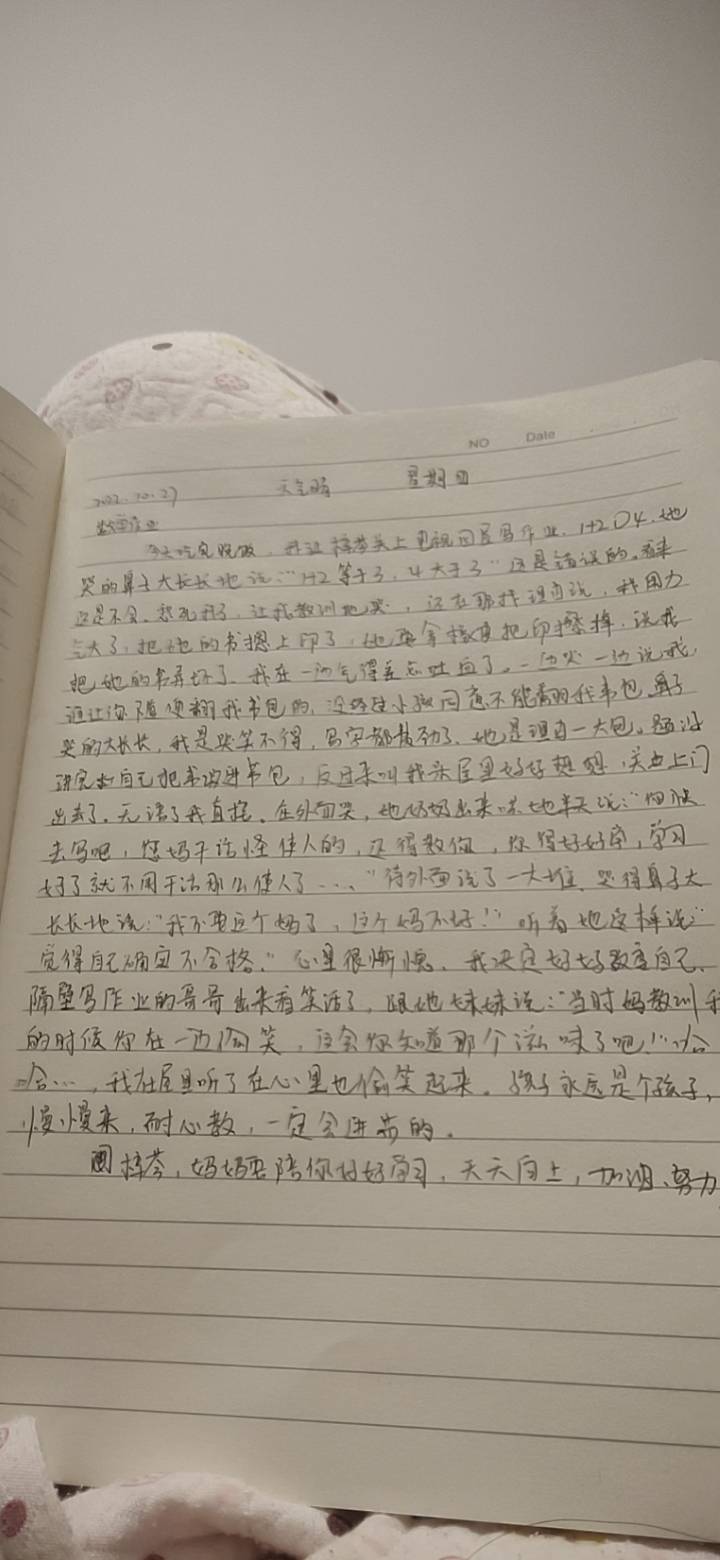 NO Date
2022.10.27 天气晴 星期四
数学作业
今天吃完晚饭,我让梓芩关上电视回屋写作业,1+2○4,她
哭的鼻子大长长地说:“1+2等于3,4大于3”这是错误的,看来
还是不会,气死我了,让我教训她哭,还在那找理由说,我用力
气大了,把她的书摁上印了,她要拿橡皮把印擦掉,说我
把她的书弄坏了,我在一边气得差点吐血了。一边哭一边说我,
谁让你随便翻我书包的,没经过小孩同意不能翻我书包,鼻子
哭的大长长,我是哭笑不得,写字都费劲了,她是理由一大包。题没
讲完她自己把书收进书包,反过来叫我在屋里好好想想,关上门
出去了。无语了我直接。在外面哭,她奶奶出来哄她半天说:“快
去写吧,您妈干活怪使人的,还得教你,你得好好学,学习
好了就不用干活那么使人了...”待外面说了一大堆,哭得鼻子大
长长地说:“我不要这个妈了,这个妈不好!”听着她这样说“
觉得自己确实不合格。”心里很惭愧,我决定好好教育自己、
隔壁写作业的哥哥出来看笑话了,跟她妹妹说:“当时妈教训我
的时候你在一边偷笑,这会你知道那个滋味了吧!”哈
哈...,我在屋里听了在心里也偷笑起来。孩子永远是个孩子,
慢慢来,耐心教,一定会进步的。
梓芩,妈妈要陪你好好学习,天天向上,加油、努力